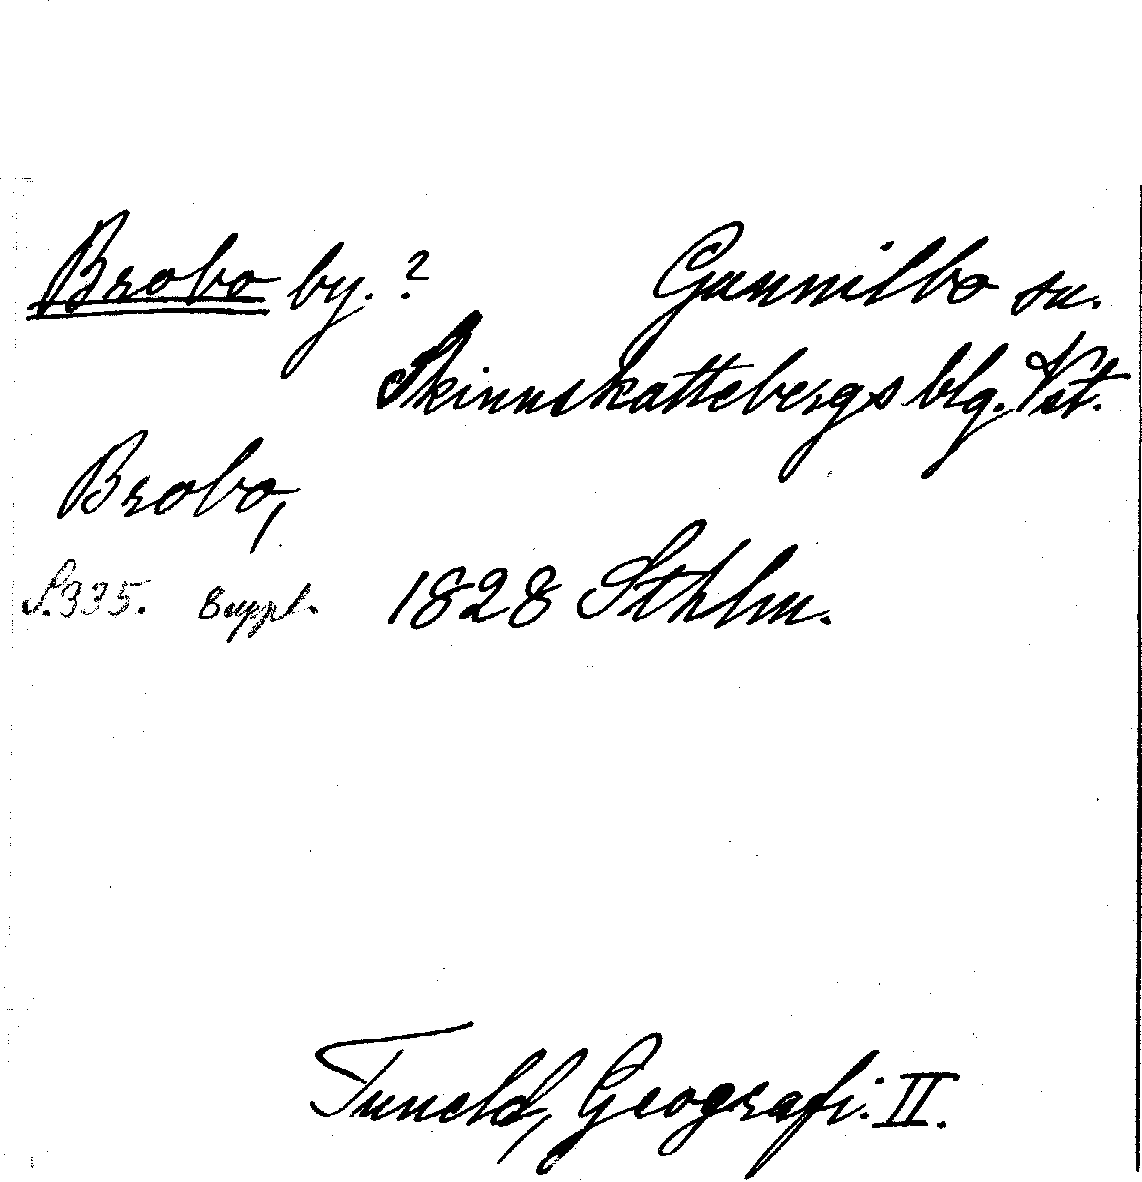 Brobo by. ? Gunnilbo sn.
Skinnskattebergs blg. Vst.
Brobo,
S.335. Suppl. 1828 Sthlm.
Tuneld, Geografi. II.